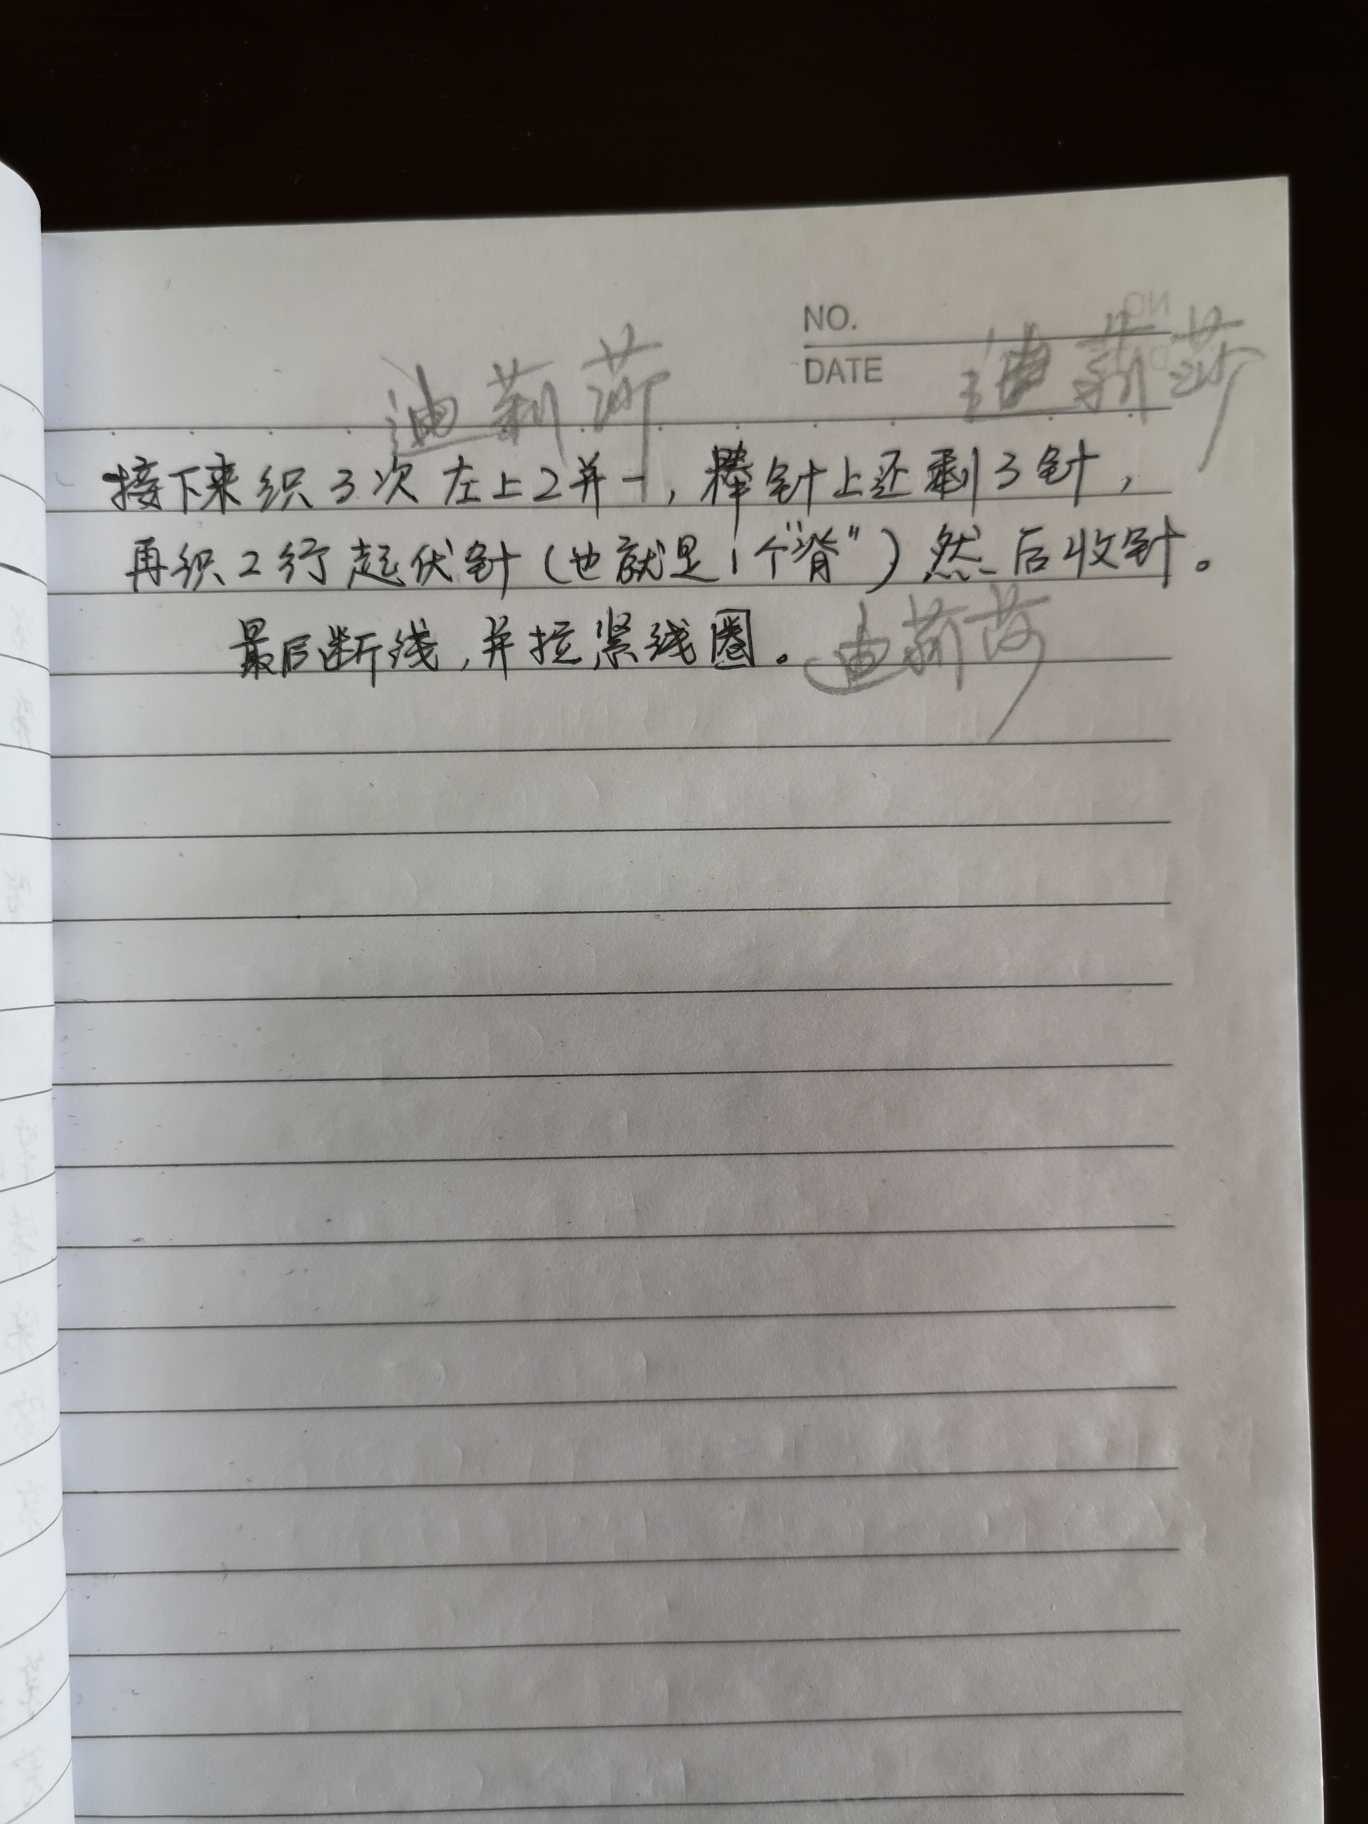 NO.
DATE
迪莉莎 迪莉莎
接下来织3次左上2并一，棒针上还剩3针，
再织2行起伏针（也就是1个“脊”）然后收针。
最后断线，并拉紧线圈。迪莉莎